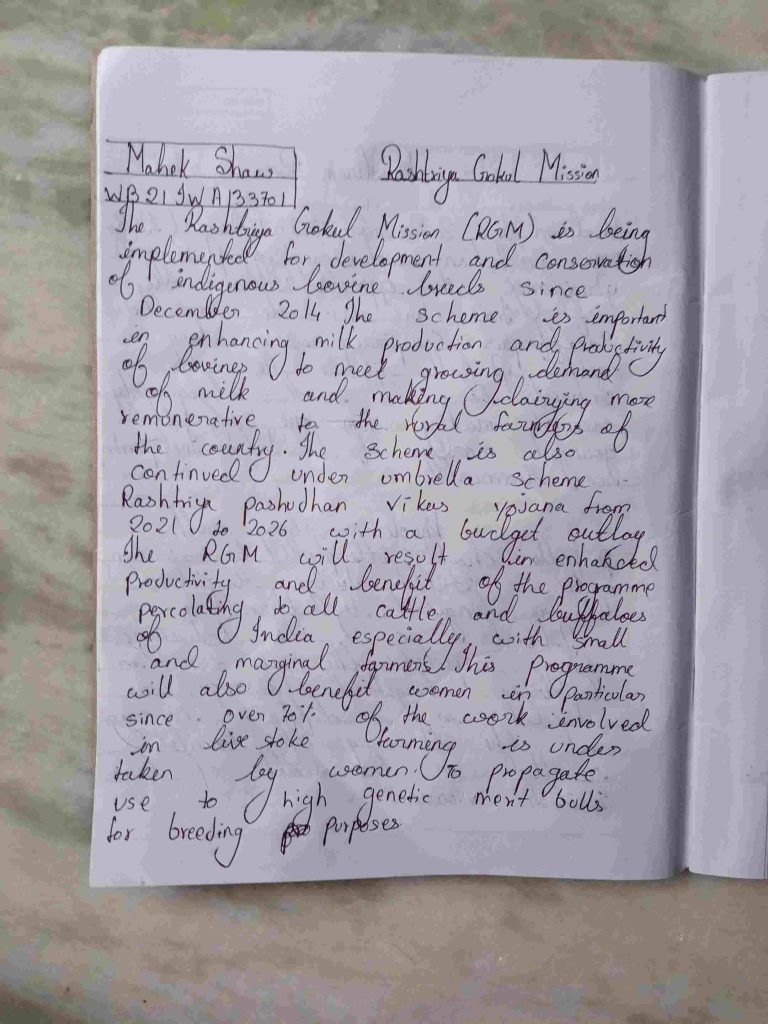 Mahek Shaw
Rashtriya Gokul Mission
WB21SWA133701
The Rashtriya Gokul Mission (RGM) is being
implemented for development and conservation
of indigenous bovine breeds since
December 2014 The scheme is important
in enhancing milk production and productivity
of bovines to meet growing demand
of milk and making dairying more
remunerative to the rural farmers of
the country. The scheme is also
continued under umbrella scheme
Rashtriya pashudhan vikas yojana from
2021 to 2026 with a budget outlay
The RGM will result in enhanced
productivity and benefit of the programme
percolating to all cattle and buffaloes
of India especially with small
and marginal farmers. This programme
will also benefit women in particular
since over 70% of the work involved
in live stoke farming is under
taken by women. To propagate
use to high genetic merit bulls
for breeding purposes